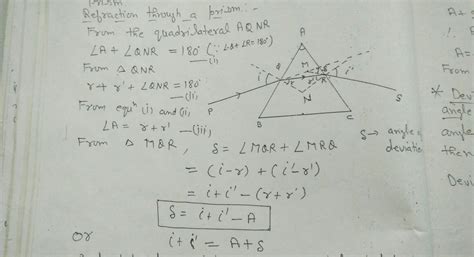 prism
Refraction through a prism:-
From the quadrilateral AQNR
∠A + ∠QNR = 180° (∵ ∠Q+∠R=180°)
—(i)
From △ QNR
r + r' + ∠QNR = 180°
—(ii)
From equⁿ (i) and (ii),
∠A = r + r' —(iii)
From △ MQR, δ = ∠MQR + ∠MRQ
= (i-r) + (i'-r')
= i + i' - (r + r')
δ = i + i' - A
or
i + i' = A + δ
A
M
Q
R
i
i'
r
N
P
S
B
C
δ → angle
deviatio
A +
∴ A
From
* Devi
angle
an
then
Devi